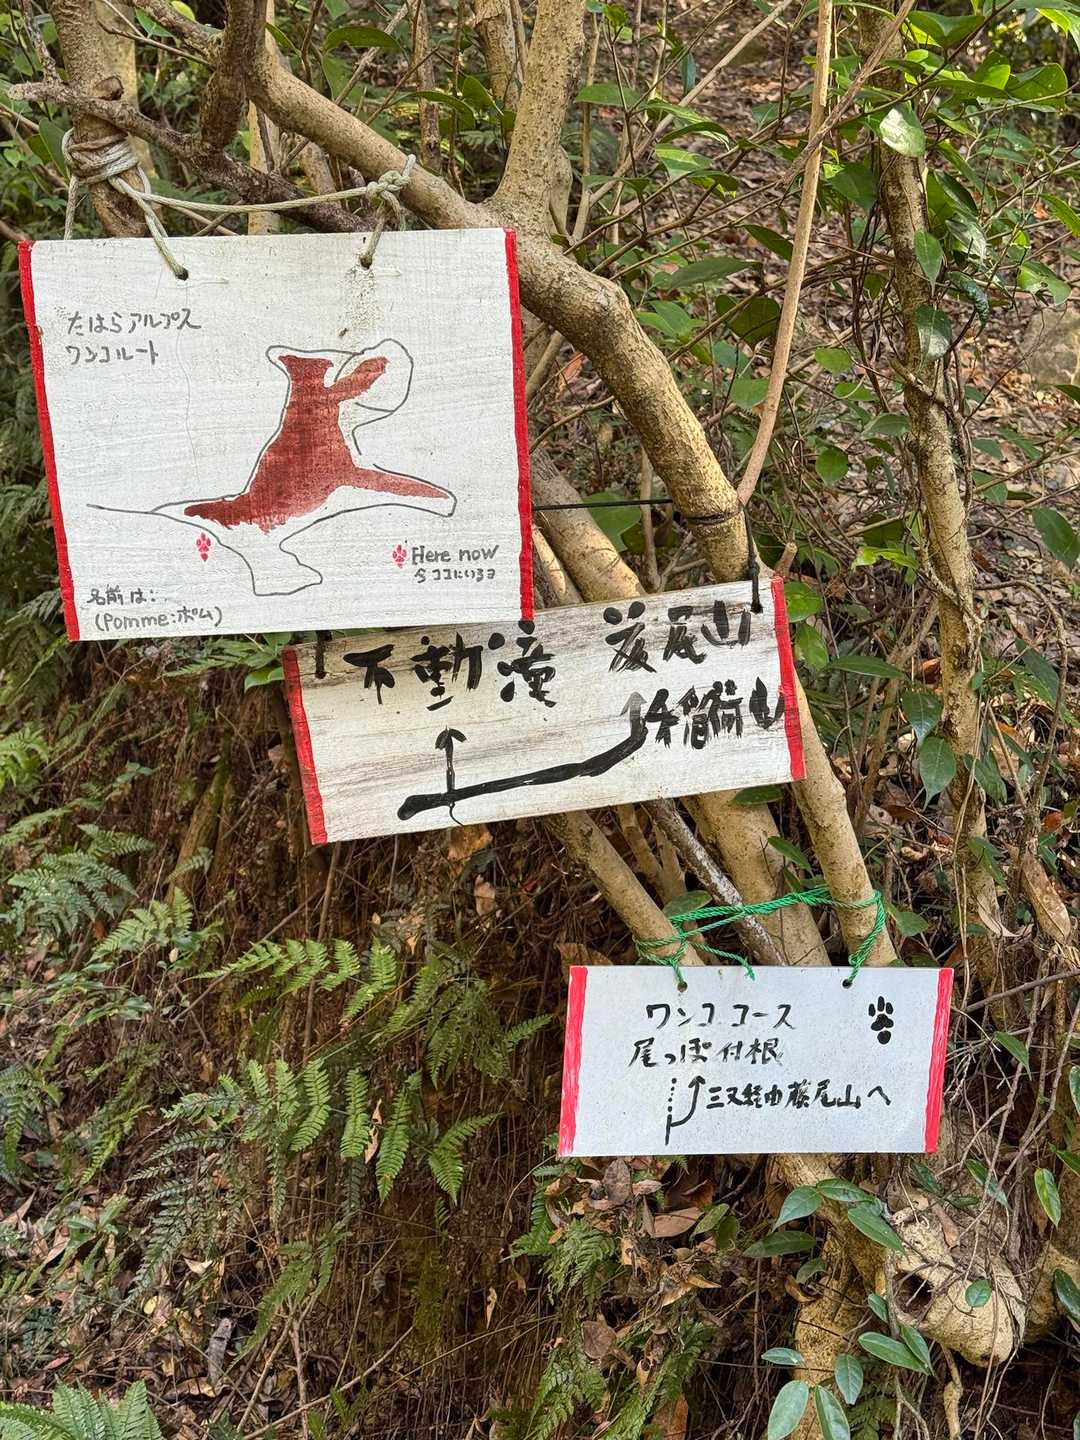 たはらアルプス
ワンコルート
Here now
今ココにいるヨ
名前は:
(Pomme:ポム)
不動滝
藤尾山
稲荷山
ワンココース
尾っぽ付根
三又経由藤尾山へ